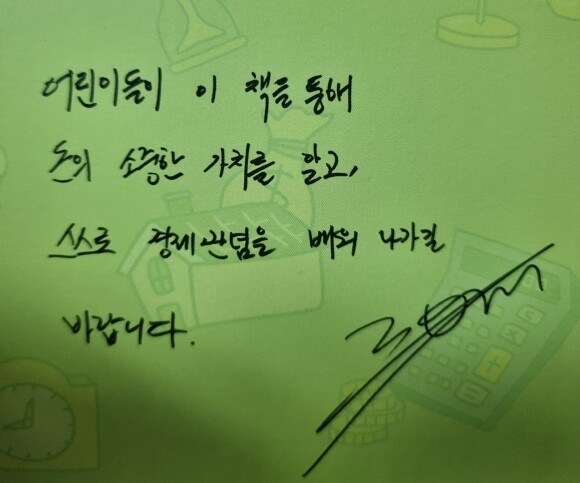 어린이들이 이 책을 통해
돈의 소중한 가치를 알고,
스스로 경제관념을 배워 나가길
바랍니다.